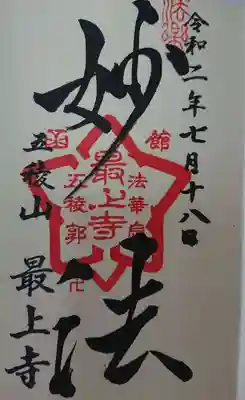 令和二年七月十八日
妙法
函館
最上寺
法華宗
五稜郭
五稜山
最上寺